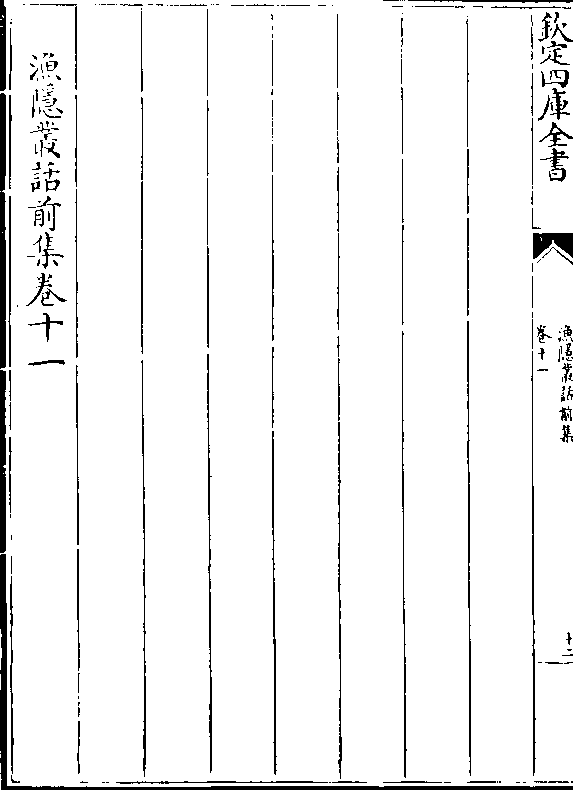 欽定四庫全書
漁隱叢話前集
卷十一
十二
漁隱叢話前集卷十一